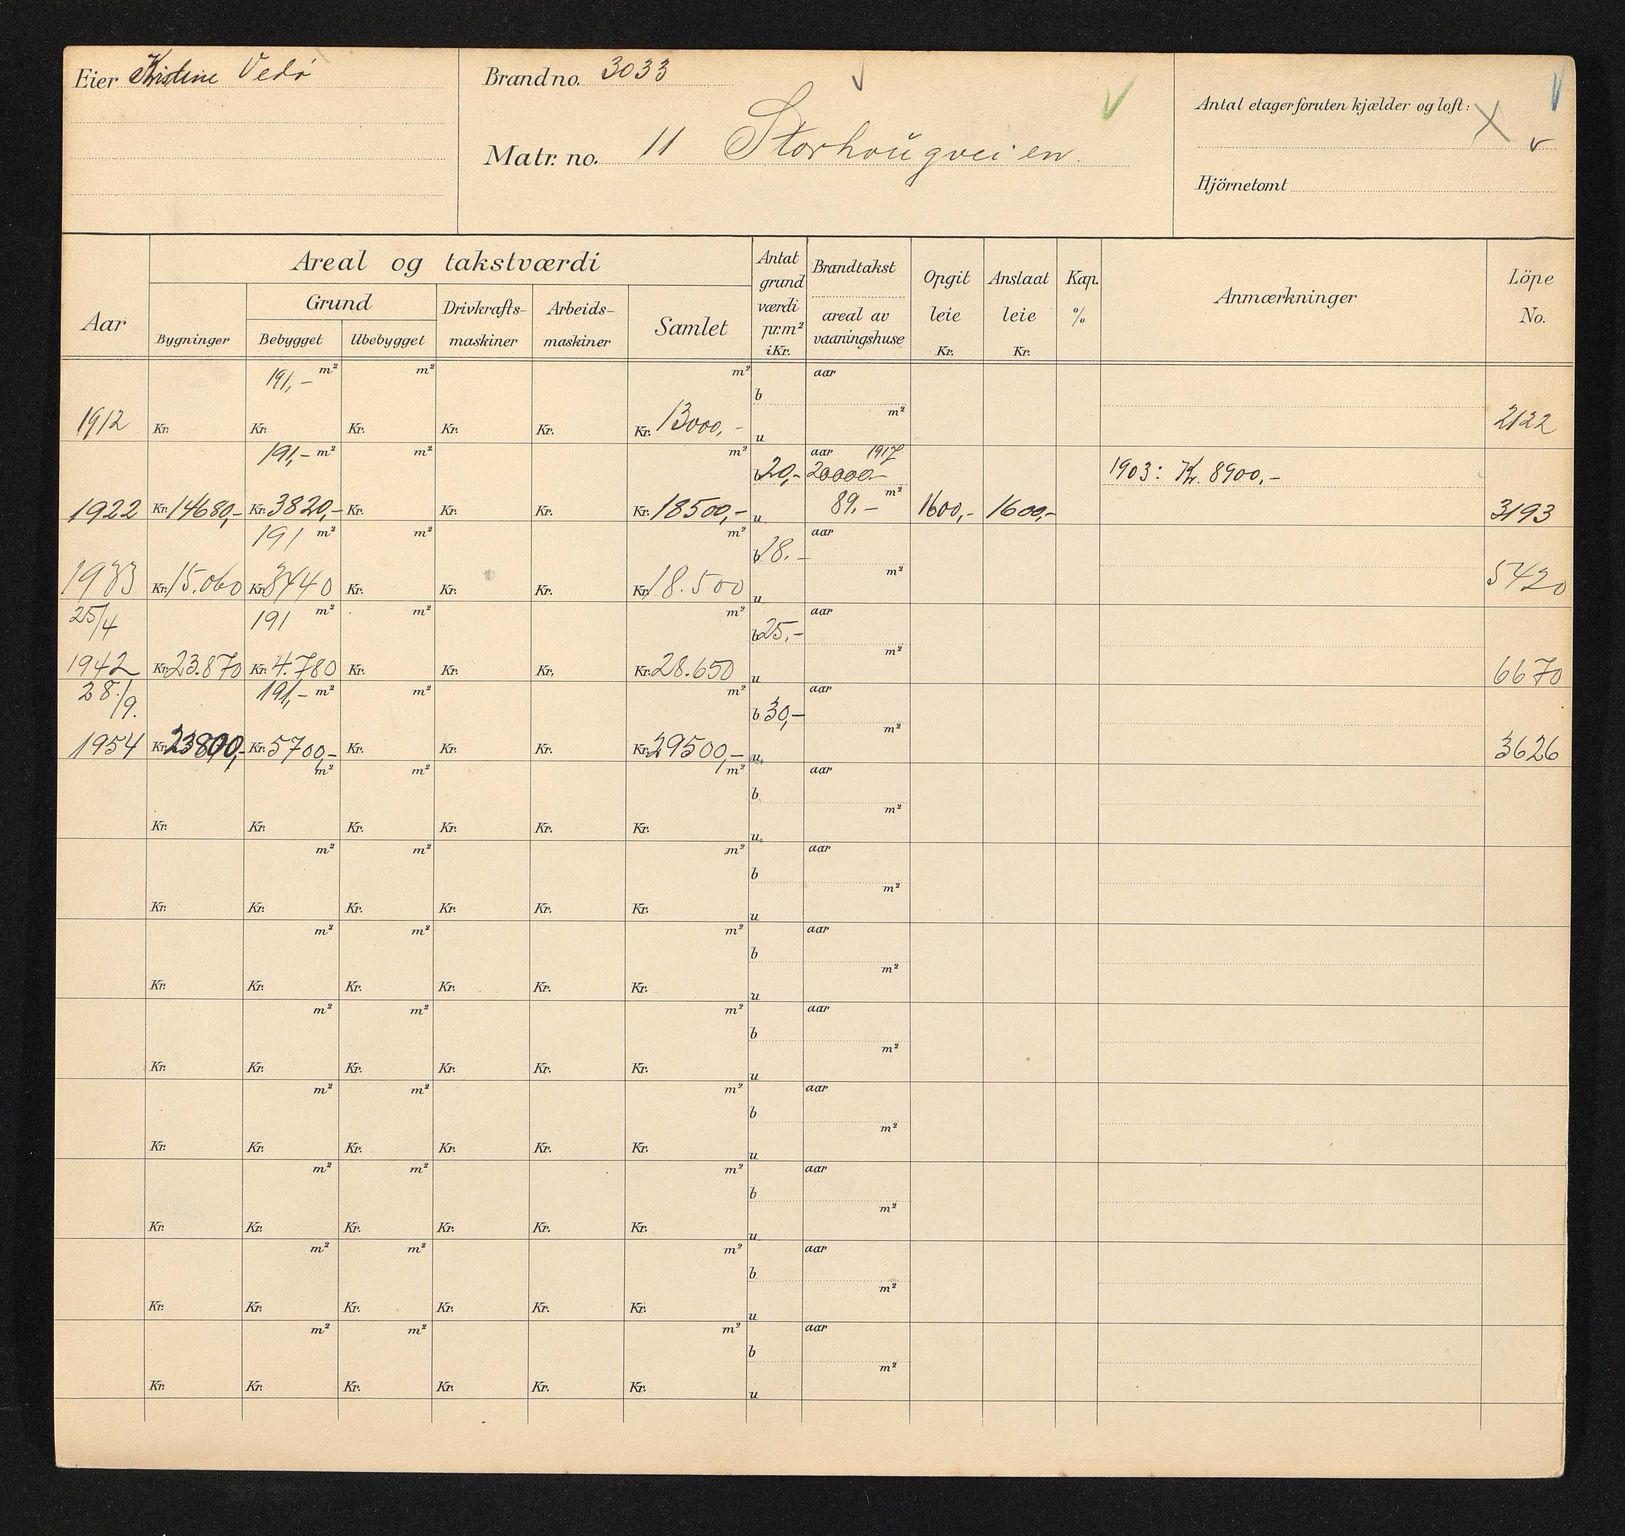 Eier Kristine Vedø
Brandno. 3033
Matr. no. 11 Storhougveien.
Antal etager foruten kjælder og loft:
Hjörnetomt
Aar
Areal og takstværdi
Grund
Bygninger
Bebygget
Ubebygget
Drivkrafts-
maskiner
Arbeids-
maskiner
Samlet
Antat
grund
værdi
pr. m²
i Kr.
Brandtakst
areal av
vaaningshuse
Opgit
leie
Kr.
Anslaat
leie
Kr.
Kap.
%
Anmærkninger
Löpe
No.
191,- m² m² m² aar
b
m²
1912 Kr. Kr. Kr. Kr. Kr. Kr. 13000,- u 2122
191,- m² m² m² aar 1917
b 20,- 20000.- 1903: Kr. 8900.-
89.- m²
1922 Kr. 14680,- Kr. 3820,- Kr. Kr. Kr. Kr. 18500,- u 1600,- 1600,- 3193
191 m² m² m² aar
b 18.-
m²
1933 Kr. 15.060 Kr. 3440 Kr. Kr. Kr. Kr. 18.500 u 5420
25/4 191 m² m² m² aar
b 25,-
m²
1942 Kr. 23.870 Kr. 4.780 Kr. Kr. Kr. Kr. 28.650 u 6670
28./9. 191,- m² m² m² aar
b 30,-
m²
1954 Kr. 23800,- Kr. 5700,- Kr. Kr. Kr. Kr. 29500,- u. 3626
m² m² m² aar
b
m²
Kr. Kr. Kr. Kr. Kr. Kr. u.
m² m² m² aar
b
m²
Kr. Kr. Kr. Kr. Kr. Kr. u
m² m² m² aar
b
m²
Kr. Kr. Kr. Kr. Kr. Kr. u
m² m² m² aar
b
m²
Kr. Kr. Kr. Kr. Kr. Kr. u
m² m² m² aar
b
m²
Kr. Kr. Kr. Kr. Kr. Kr. u
m² m² m² aar
b
m²
Kr. Kr. Kr. Kr. Kr. Kr. u
m² m² m² aar
b
m²
Kr. Kr. Kr. Kr. Kr. Kr. u
m² m² m² aar
b
m²
Kr. Kr. Kr. Kr. Kr. Kr. u